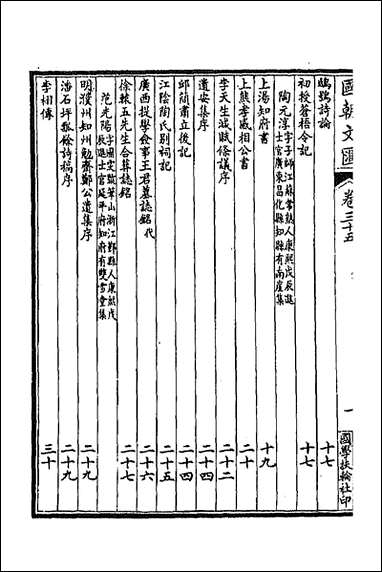 國朝文匯 卷三十五 一 國學扶輪社印
鴟鴞詩論 十七
初授蒼梧令記 十七
陶元淳 字子師江蘇常熟人康熙戊辰進士官廣東昌化縣知縣有南崖集
上湯知府書 十九
上熊孝感相公書 二十
李天生減賦條議序 二十二
遺安集序 二十四
邱簡肅立後記 二十四
江陰陶氏別祠記 二十五
廣西提學僉事王君墓誌銘 代 二十六
徐轅五先生合葬誌銘 二十七
范光陽 字國雯號筆山浙江鄞縣人康熙戊辰進士官延平府知府有雙雲堂集
明濮州知州勉齋鄭公遺集序 二十九
潘石坪瓠餘詩稿序 二十九
李相傳 三十